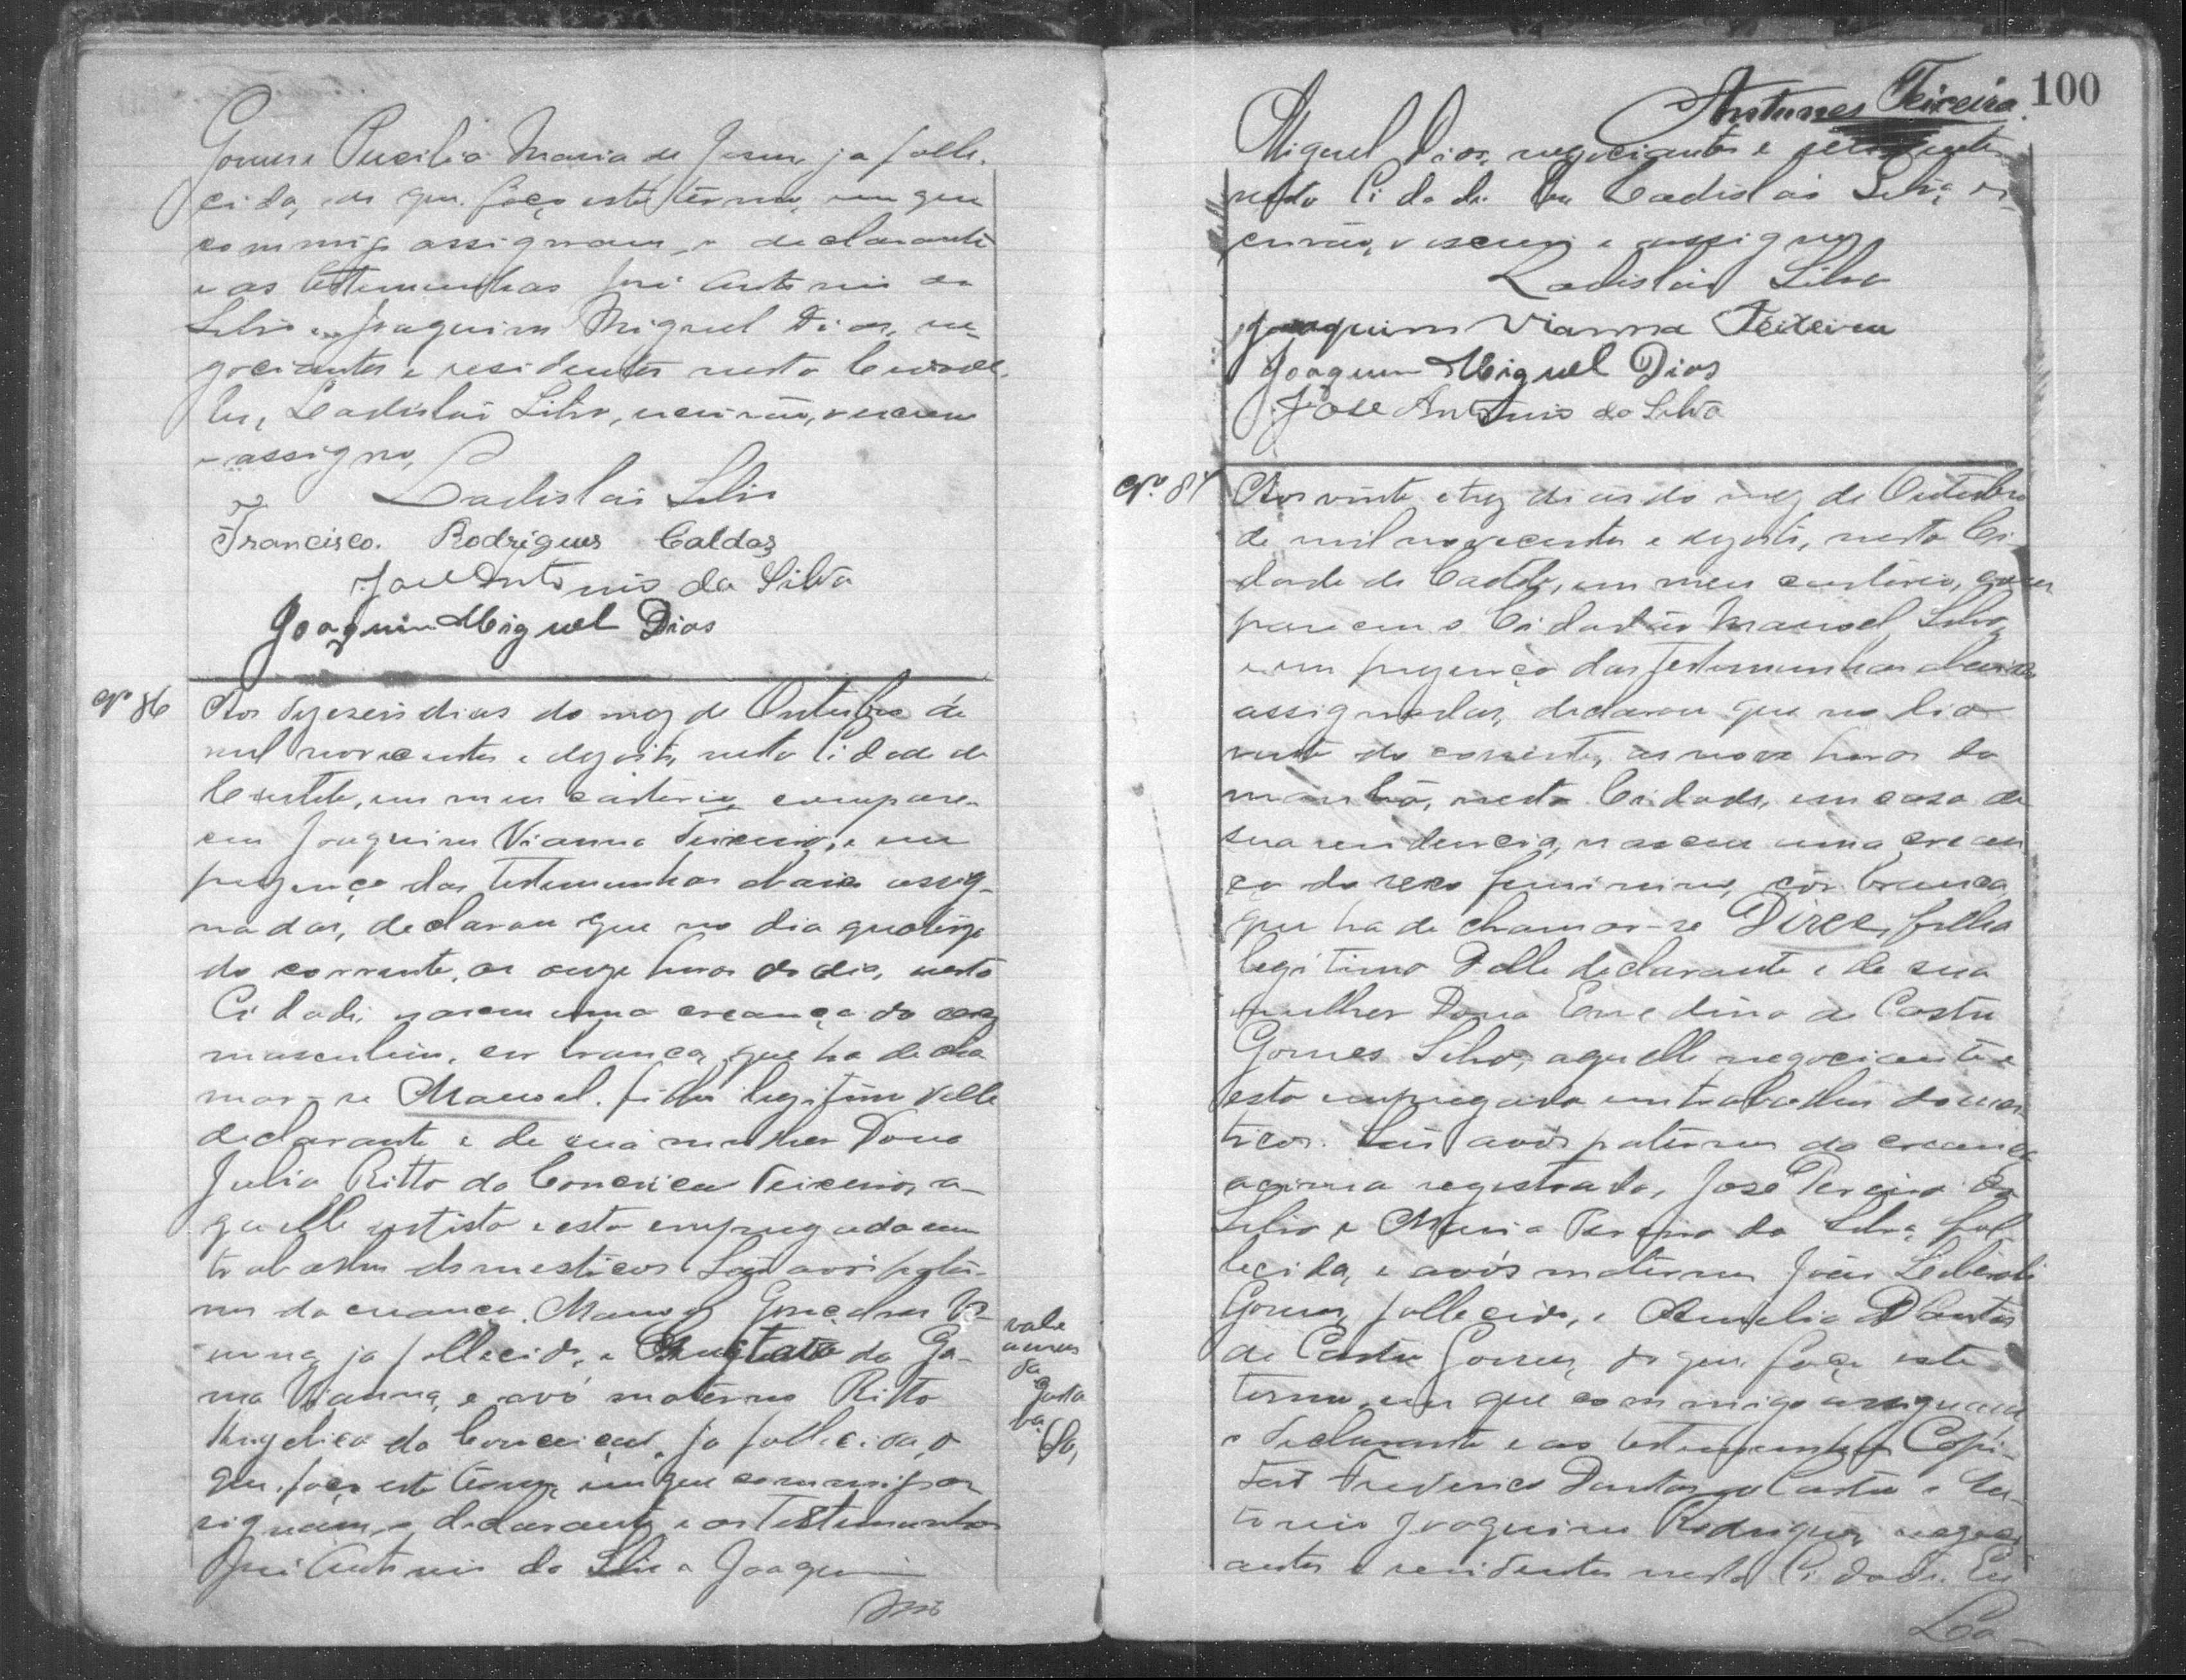 Gomes e Pucilia Maria de Jesus, ja falle-
cida, do que faço este termo, em que
commigo assignam, o declarante
e as testemunhas José Antonio da
Silva e Joaquim Miguel Dias, ne-
gociantes e residentes nesta Cidade.
Eu, Ladislau Silva, escrivão, o escrevi
e assigno,
Ladislau Silva
Francisco Rodrigues Caldas
José Antonio da Silva
Joaquim Miguel Dias
Nº 86 Aos dezeseis dias do mez de Outubro de
mil novecentos e dezoito, nesta Cidade de
Caeteté, em meu cartorio, compare-
ceu Joaquim Vianna Teixeira, e em
presença das testemunhas abaixo assig-
nadas, declarou que no dia quatorze
do corrente, as onze horas do dia, nesta
Cidade, nasceu uma creança do sexo
masculino, cor branca, que ha de cha
mar-se Manoel, filho legitimo delle
declarante e de sua mulher Dona
Julia Ritta da Conceição Teixeira, a-
quelle artista e esta empregada em
trabalhos domesticos. São avós pater-
nos da creança, Manoel Gonçalves Vi-
anna, ja fallecido, e da Ga-
ma Vianna, e avó materna Ritta
Angelica da Conceição, ja fallecida, do
que faço este termo, em que commigo as
signam, o declarante e as testemunhas
José Antonio da Silva e Joaquim
vale
a
da
Gusta
va
So,
100
Antunes Teixeira.
Miguel Dias, negociantes e residentes
nesta Cidade. Eu Ladislau Silva, es-
crivão, o escrevi e assigno
Ladislau Silva
Joaquim Vianna Teixeira
Joaquim Miguel Dias
José Antonio da Silva
Nº 87 Aos vinte e trez dias do mez de Outubro
de mil novecentos e dezoito, nesta Ci-
dade de Caeteté, em meu cartorio, com
pareceu o Cidadão Manoel Silva,
e em presença das testemunhas abaixo
assignadas, declarou que no dia
vinte do corrente, as nove horas da
manhã, nesta Cidade, em casa de
sua residencia, nasceu uma crean
ça do sexo feminino, côr branca,
que ha de chamar-se Dirce, filha
legitima delle declarante e de sua
mulher Dona Enedina de Castro
Gomes Silva, aquelle negociante e
esta empregada em trabalhos domes
ticos. São avós paternos da creança
acima registrada, José Pereira da
Silva e Maria Pereira da Silva, fal-
lecida, e avós maternos João Liberato
Gomes, fallecido, e Amelia Dantas
de Castro Gomes, do que faço este
termo, em que commigo assignam
o declarante e as testemunhas Capi-
tão Frederico Dantas de Castro e An-
tonio Joaquim Rodrigues, negoci
antes e residentes nesta Cidade. Eu
La-